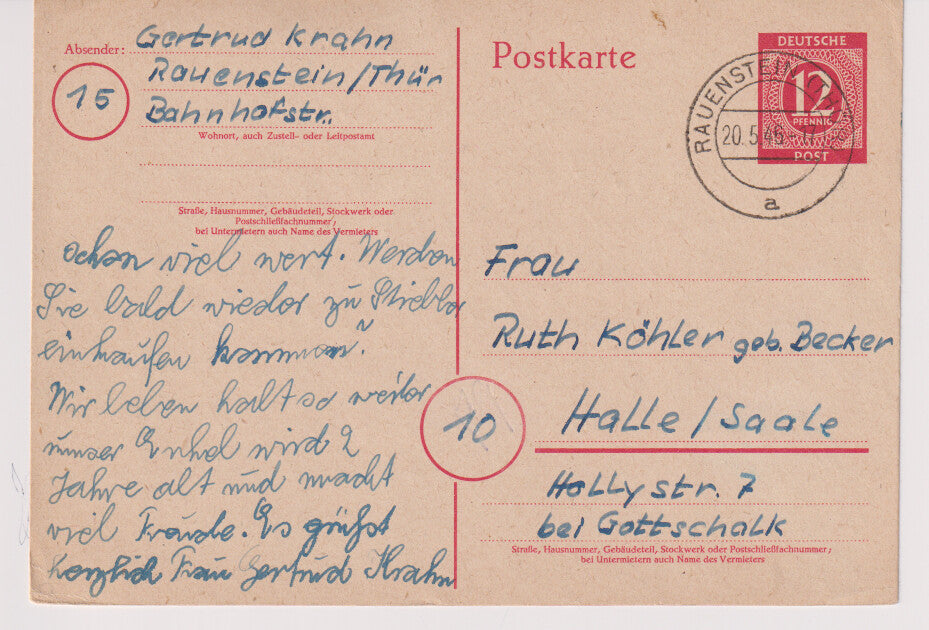 Absender: Gertrud Krahn
15
Rauenstein/Thür
Bahnhofstr.
Wohnort, auch Zustell- oder Leitpostamt
Straße, Hausnummer, Gebäudeteil, Stockwerk oder
Postschließfachnummer;
bei Untermietern auch Name des Vermieters
schon viel wert. Werden
Sie bald wieder zu
einkaufen kommen?
Wir leben halt so weiter
unser Enkel wird 2
Jahre alt und macht
viel Freude. Es grüßt
herzlich Frau Gertrud Krahn
Postkarte
DEUTSCHE
12
PFENNIG
POST
RAUENSTEIN (THÜR)
20.5.46
a
Frau
Ruth Köhler geb. Becker
10
Halle/Saale
Hollystr. 7
bei Gottschalk
Straße, Hausnummer, Gebäudeteil, Stockwerk oder Postschließfachnummer;
bei Untermietern auch Name des Vermieters